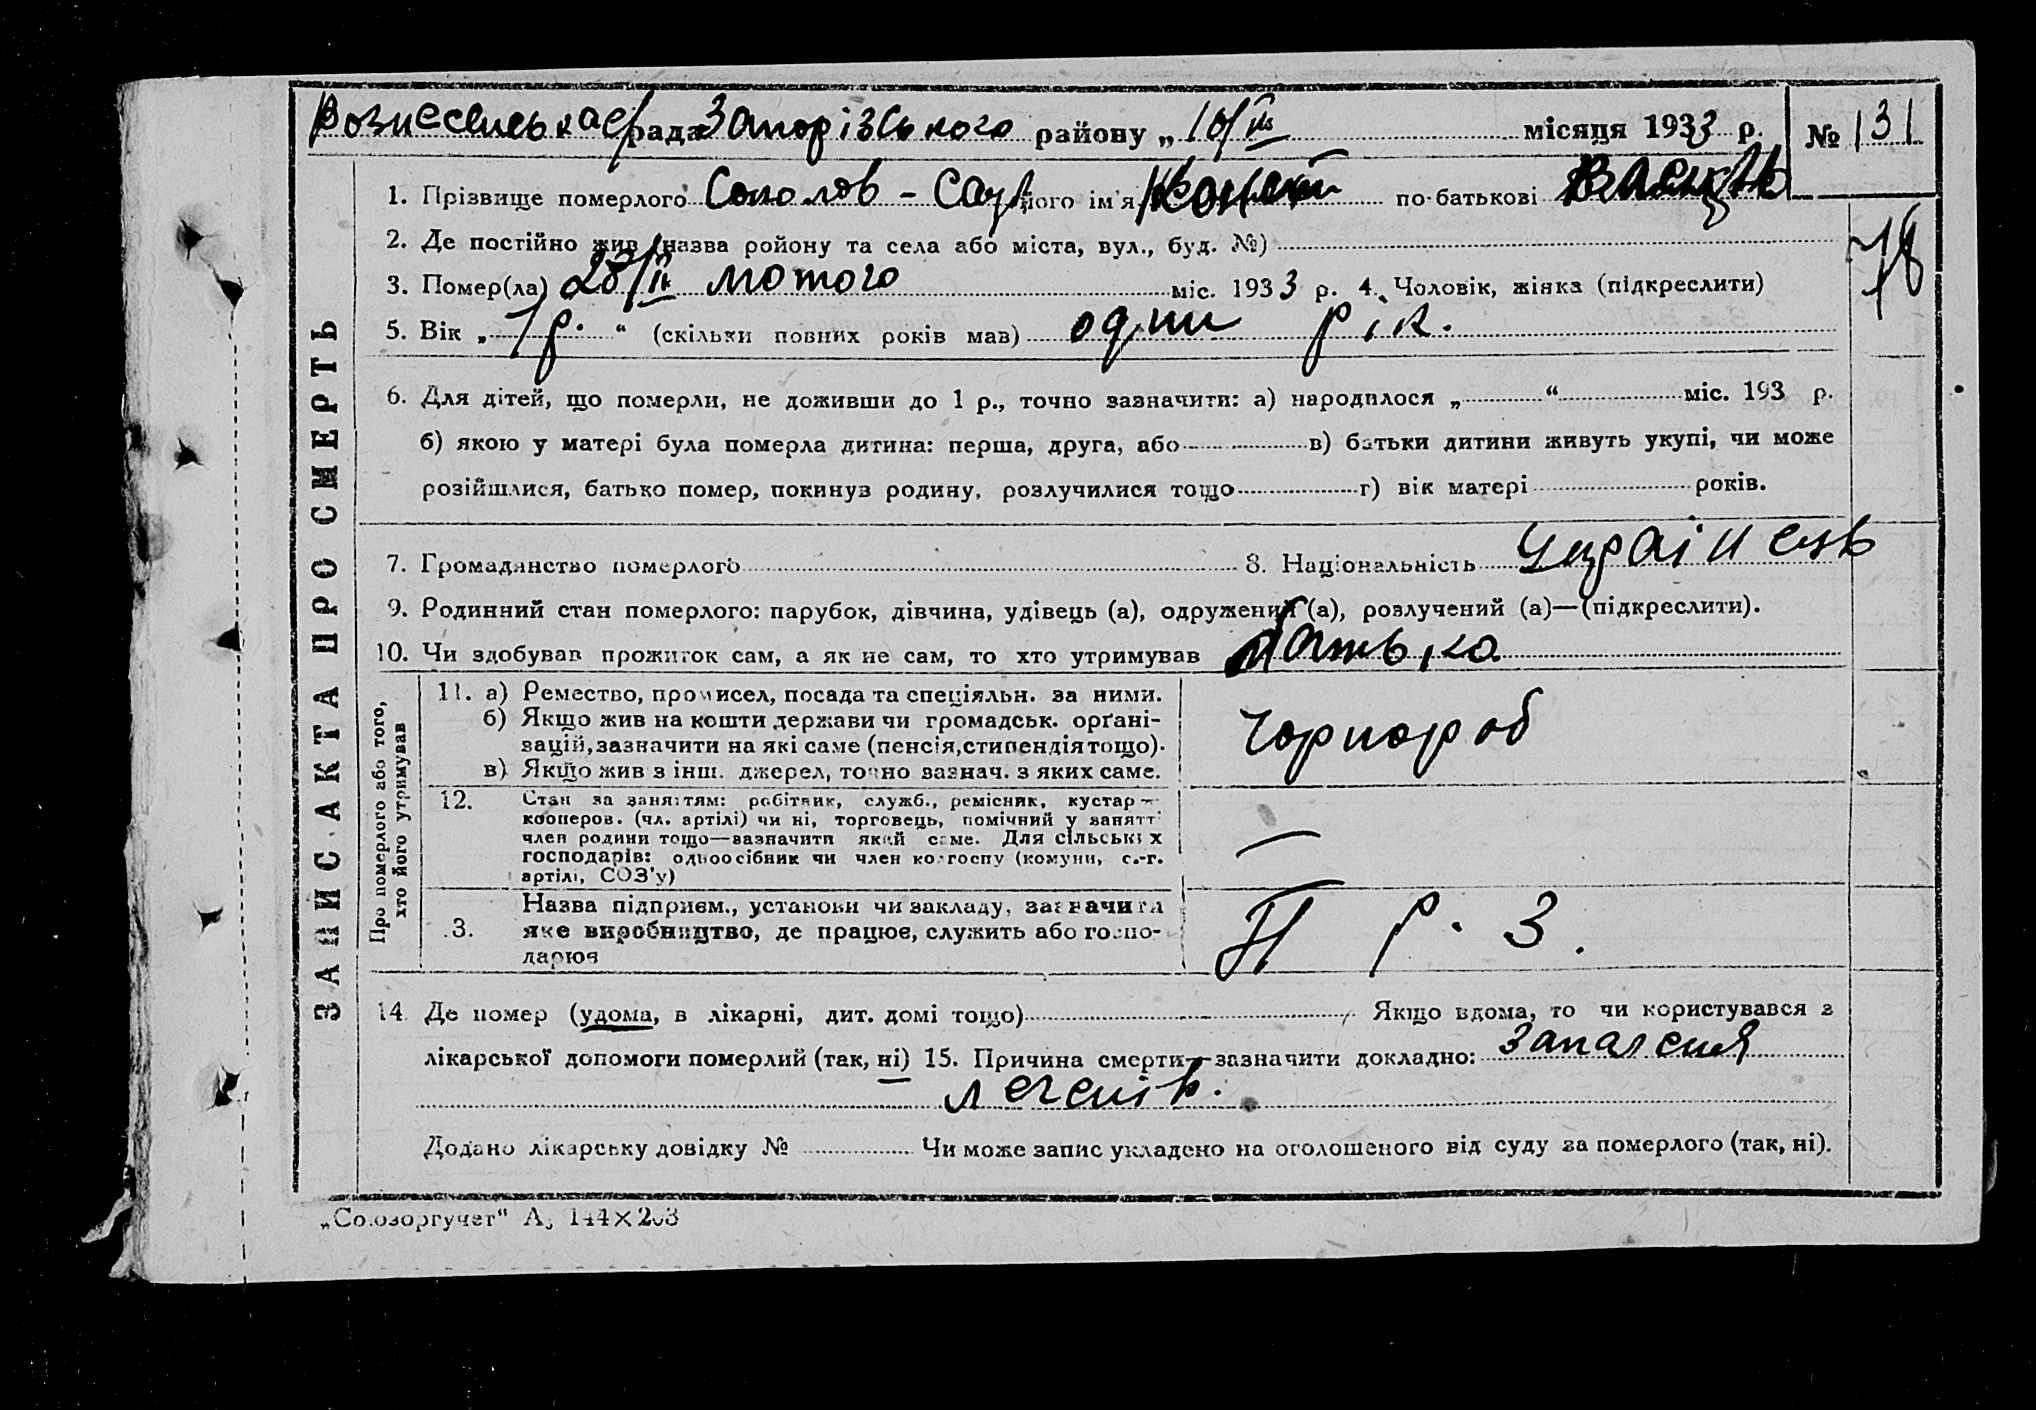 Вознесенська с/рада Запорізького району „10/III місяця 1933 р. № 131
1. Прізвище померлого Соколов - його ім'я по-батькові
2. Де постійно жив (назва ройону та села або міста, вул., буд. №)
78
3. Помер(ла) 28/II лютого міс. 1933 р. 4. Чоловік, жінка (підкреслити)
5. Вік „1 р. “ (скільки повних років мав) один рік.
6. Для дітей, що померли, не доживши до 1 р., точно зазначити: а) народилося „ “ міс. 193 р.
б) якою у матері була померла дитина: перша, друга, або в) батьки дитини живуть укупі, чи може
розійшлися, батько помер, покинув родину, розлучилися тощо г) вік матері років.
7. Громадянство померлого 8. Національність Українець
9. Родинний стан померлого: парубок, дівчина, удівець (а), одружений (а), розлучений (а)—(підкреслити).
10. Чи здобував прожиток сам, а як не сам, то хто утримував батько
ЗАПИС АКТА ПРО СМЕРТЬ
Про померлого або того,
хто його утримував
11. а) Ремество, промисел, посада та спеціяльн. за ними.
б) Якщо жив на кошти держави чи громадськ. орґані-
зацій, зазначити на які саме (пенсія, стипендія тощо).
в) Якщо жив з інш. джерел, точно зазнач. з яких саме.
Чорнороб
12. Стан за заняттям: робітник, служб., ремісник, кустар —
кооперов. (чл. артілі) чи ні, торговець, помічний у занятт
член родини тощо—зазначити який саме. Для сільських
господарів: одноосібник чи член колгоспу (комуни, с.-г.
артілі, СОЗ'у)
—
3. Назва підприєм., установи чи закладу, зазначити
яке виробництво, де працює, служить або госпо-
дарює
П Р. З.
14. Де помер (удома, в лікарні, дит. домі тощо) Якщо вдома, то чи користувався з
лікарської допомоги померлий (так, ні) 15. Причина смерти—зазначити докладно: запалення
легенів.
Додано лікарську довідку № Чи може запис укладено на оголошеного від суду за померлого (так, ні).
„Союзоргучет“ А₅ 144×203